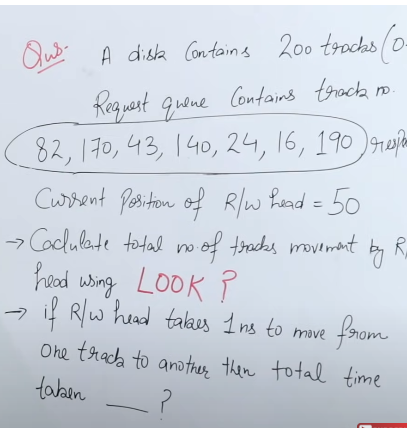 Qus. A disk Contains 200 tracks (0-
Request queue Contains track no.
82, 170, 43, 140, 24, 16, 190 respe
Current Position of R/W head = 50
→ Caclulate total no. of tracks movement by R/
head using LOOK ?
→ if R/W head takes 1ns to move from
one track to another then total time
taken ___ ?